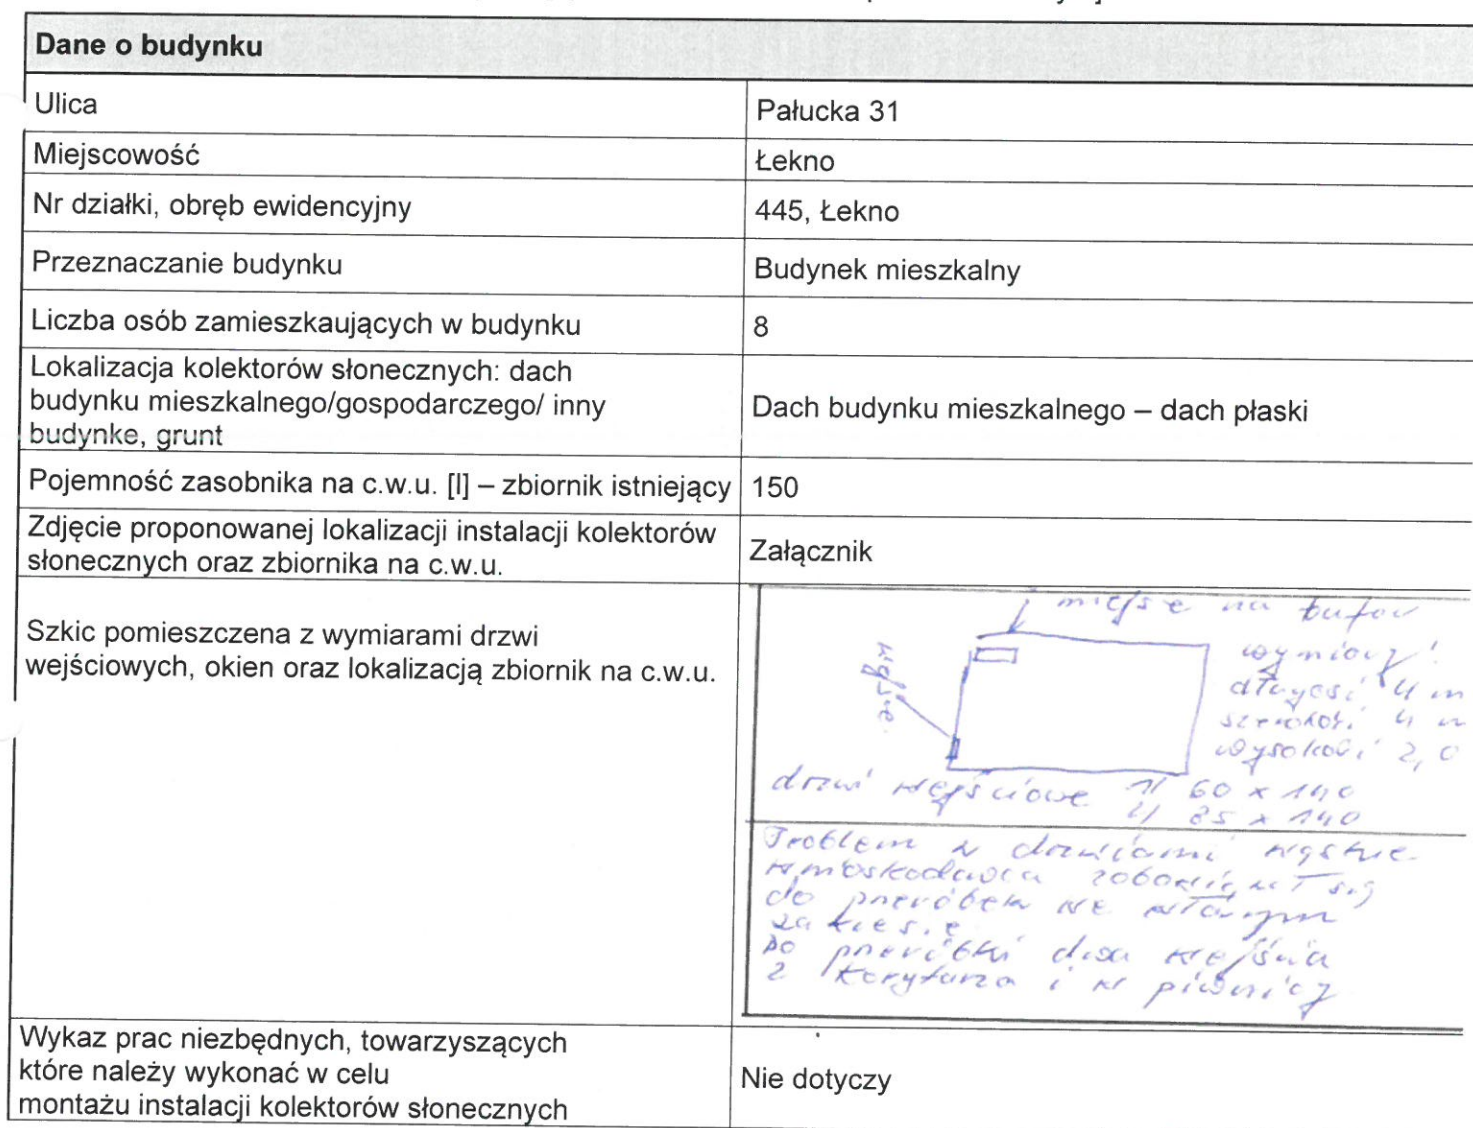 Dane o budynku
Ulica
Pałucka 31
Miejscowość
Łekno
Nr działki, obręb ewidencyjny
445, Łekno
Przeznaczanie budynku
Budynek mieszkalny
Liczba osób zamieszkaujących w budynku
8
Lokalizacja kolektorów słonecznych: dach
budynku mieszkalnego/gospodarczego/ inny
budynke, grunt
Dach budynku mieszkalnego – dach płaski
Pojemność zasobnika na c.w.u. [l] – zbiornik istniejący
150
Zdjęcie proponowanej lokalizacji instalacji kolektorów
słonecznych oraz zbiornika na c.w.u.
Załącznik
Szkic pomieszczena z wymiarami drzwi
wejściowych, okien oraz lokalizacją zbiornik na c.w.u.
miejsce na bufor
wejście
wymiary:
długość 4 m
szerokość 4 m
wysokość 2,0
drzwi wejściowe 1/ 60 x 140
2/ 85 x 140
Problem z drzwiami wąskie
wnioskodawca zobowiązał się
do przeróbek we własnym
zakresie
Do przeróbki dwa wejścia
z korytarza i w piwnicy
Wykaz prac niezbędnych, towarzyszących
które należy wykonać w celu
montażu instalacji kolektorów słonecznych
Nie dotyczy